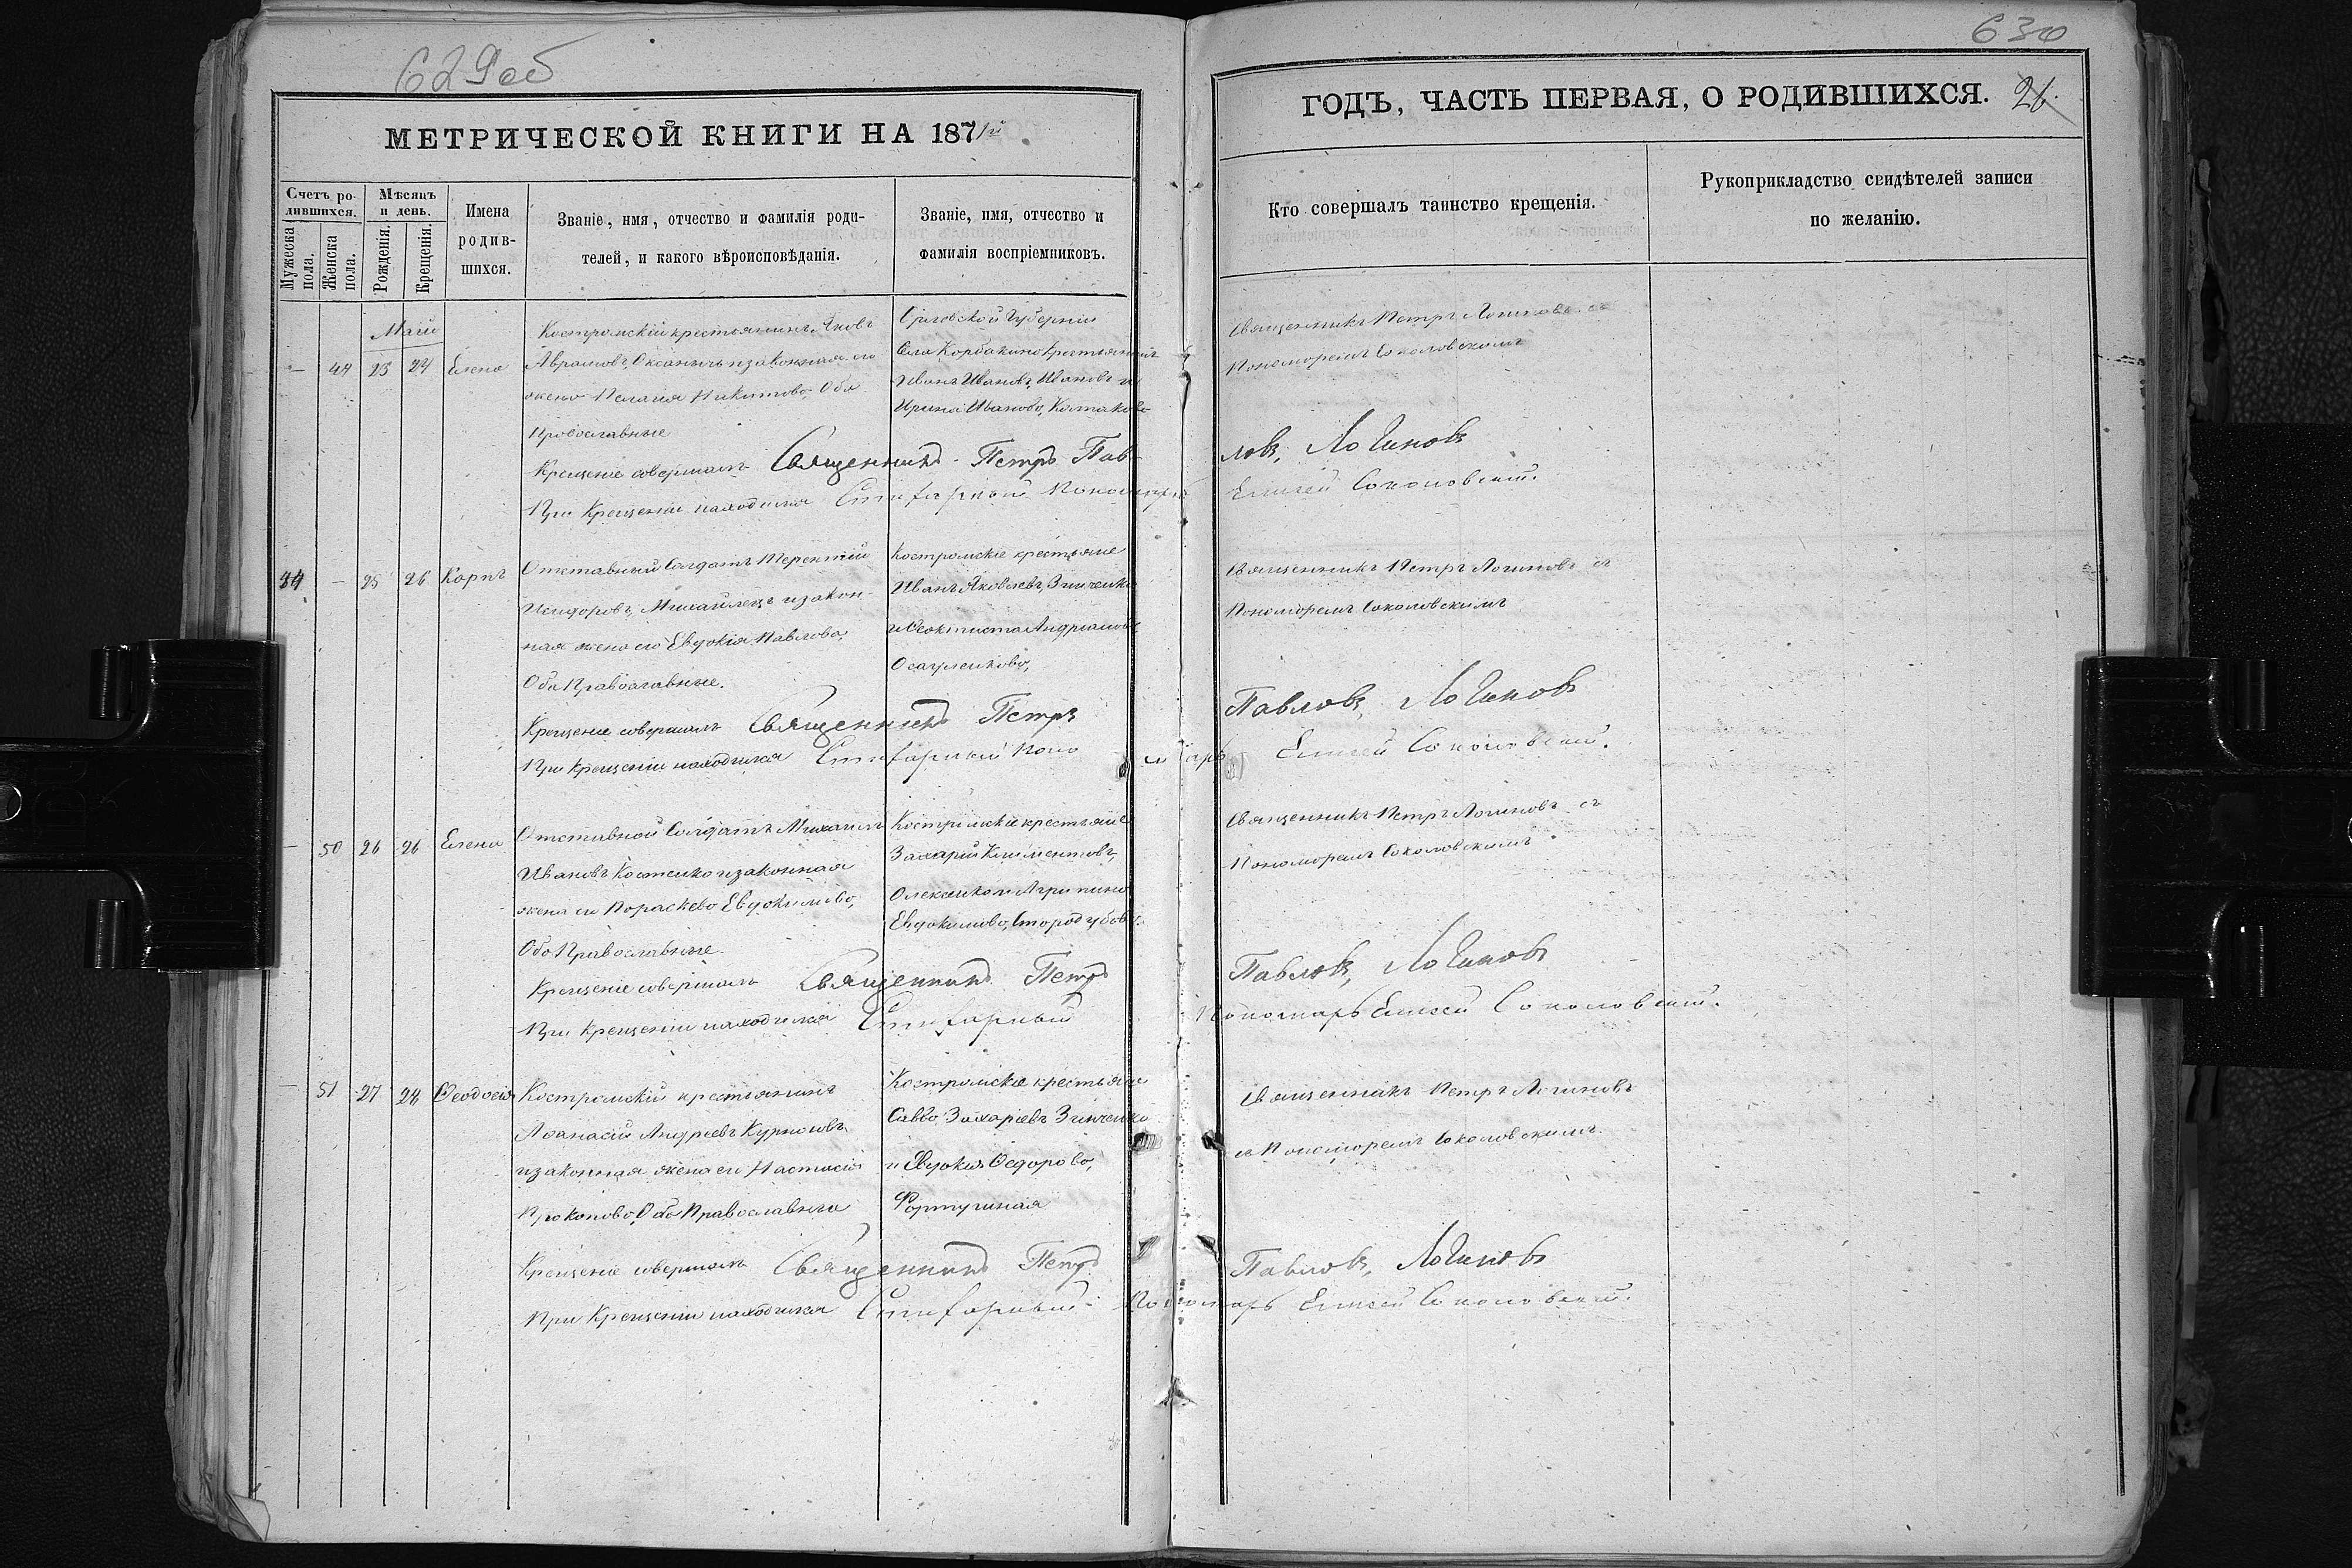 629об
МЕТРИЧЕСКОЙ КНИГИ НА 1871й
Счетъ ро-
дившихся.
Мужеска пола.
Женска пола.
Мѣсяцъ
и день.
Рожденія.
Крещенія.
Имена
родив-
шихся.
Званіе, имя, отчество и фамилія роди-
телей, и какого вѣроисповѣданія.
Званіе, имя, отчество и
фамилія воспріемниковъ.
630
ГОДЪ, ЧАСТЬ ПЕРВАЯ, О РОДИВШИХСЯ. 26.
Кто совершалъ таинство крещенія.
Рукоприкладство свидѣтелей записи
по желанію.
Маій
— 49 23 24 Елена
Костромскій крестьянинъ Яковъ
Аврамовъ, и законная его
жена Пелагія Никитова, Оба
Православные
Губерніи
Села крестьянинъ
Иванъ Ивановъ, Ивановъ и
Ирина Иванова,
Священникъ Петръ Логиновъ съ
Пономоремъ Соколовскимъ
Крещеніе совершалъ Священникъ Петръ Пав
ловъ, Логиновъ
При Крещеніи находился Пономарь
Елисей Соколовскій.
34 — 25 26 Карпъ
Отставный Солдатъ Терентій
Исидоровъ, Михайлецъ и закон-
ная жена его Евдокія Павлова,
Оба Православные.
Костромскіе крестьяне
Иванъ Яковлевъ, Зинченко
и Феоктиста Андріанова
Осауленкова,
Священникъ Петръ Логиновъ съ
Пономоремъ Соколовскимъ
Крещеніе совершалъ Священникъ Петръ
Павловъ, Логиновъ
При Крещеніи находился Поно
марь Елисей Соколовскій.
— 50 26 26 Елена
Отставной Солдатъ Михаилъ
Ивановъ Костенко и законная
жена его Параскева Евдокимова,
Оба Православные.
Костромскіе крестьяне
Захарій Климентовъ,
Олексенко и Агрипина
Евдокимова, Стородубова.
Священникъ Петръ Логиновъ съ
Пономоремъ Соколовскимъ
Крещеніе совершалъ Священникъ Петръ
Павловъ, Логиновъ
При Крещеніи находился
Пономарь Елисей Соколовскій.
— 51 27 28 Феодосія
Костромскій крестьянинъ
Афанасій Андреевъ Курносовъ
и законная жена его Настасія
Прокопова, Оба Православные
Костромскіе крестьяне
Савва Захаріевъ Зинченко
и Евдокія Федорова,
Фортушная
Священникъ Петръ Логиновъ
съ Пономоремъ Соколовскимъ.
Крещеніе совершалъ Священникъ Петръ
Павловъ, Логиновъ
При Крещеніи находился
Пономарь Елисей Соколовскій.